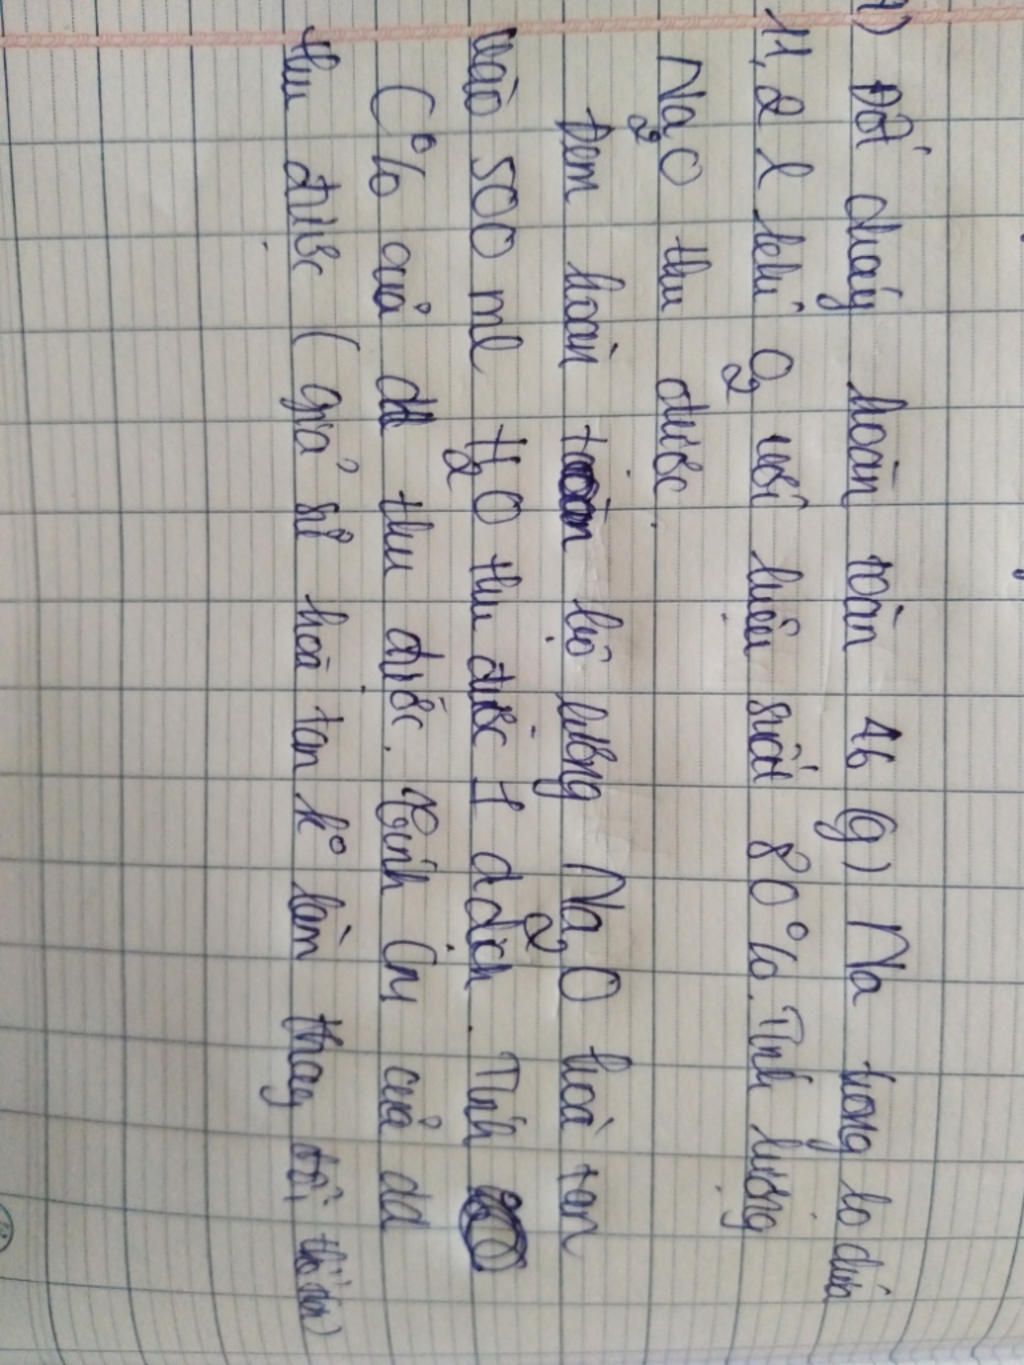 ) Đốt cháy hoàn toàn 46 (g) Na trong lọ chứa
11,2 l khí O2 với hiệu suất 80%. Tính lượng
Na2O thu được.
Đem hoàn toàn bộ lượng Na2O hoà tan
vào 500 ml H2O thu được 1 ddịch. Tính
C% của dd thu được. Tính CM của dd
thu được (giả sử hoà tan ko làm thay đổi thể tích)